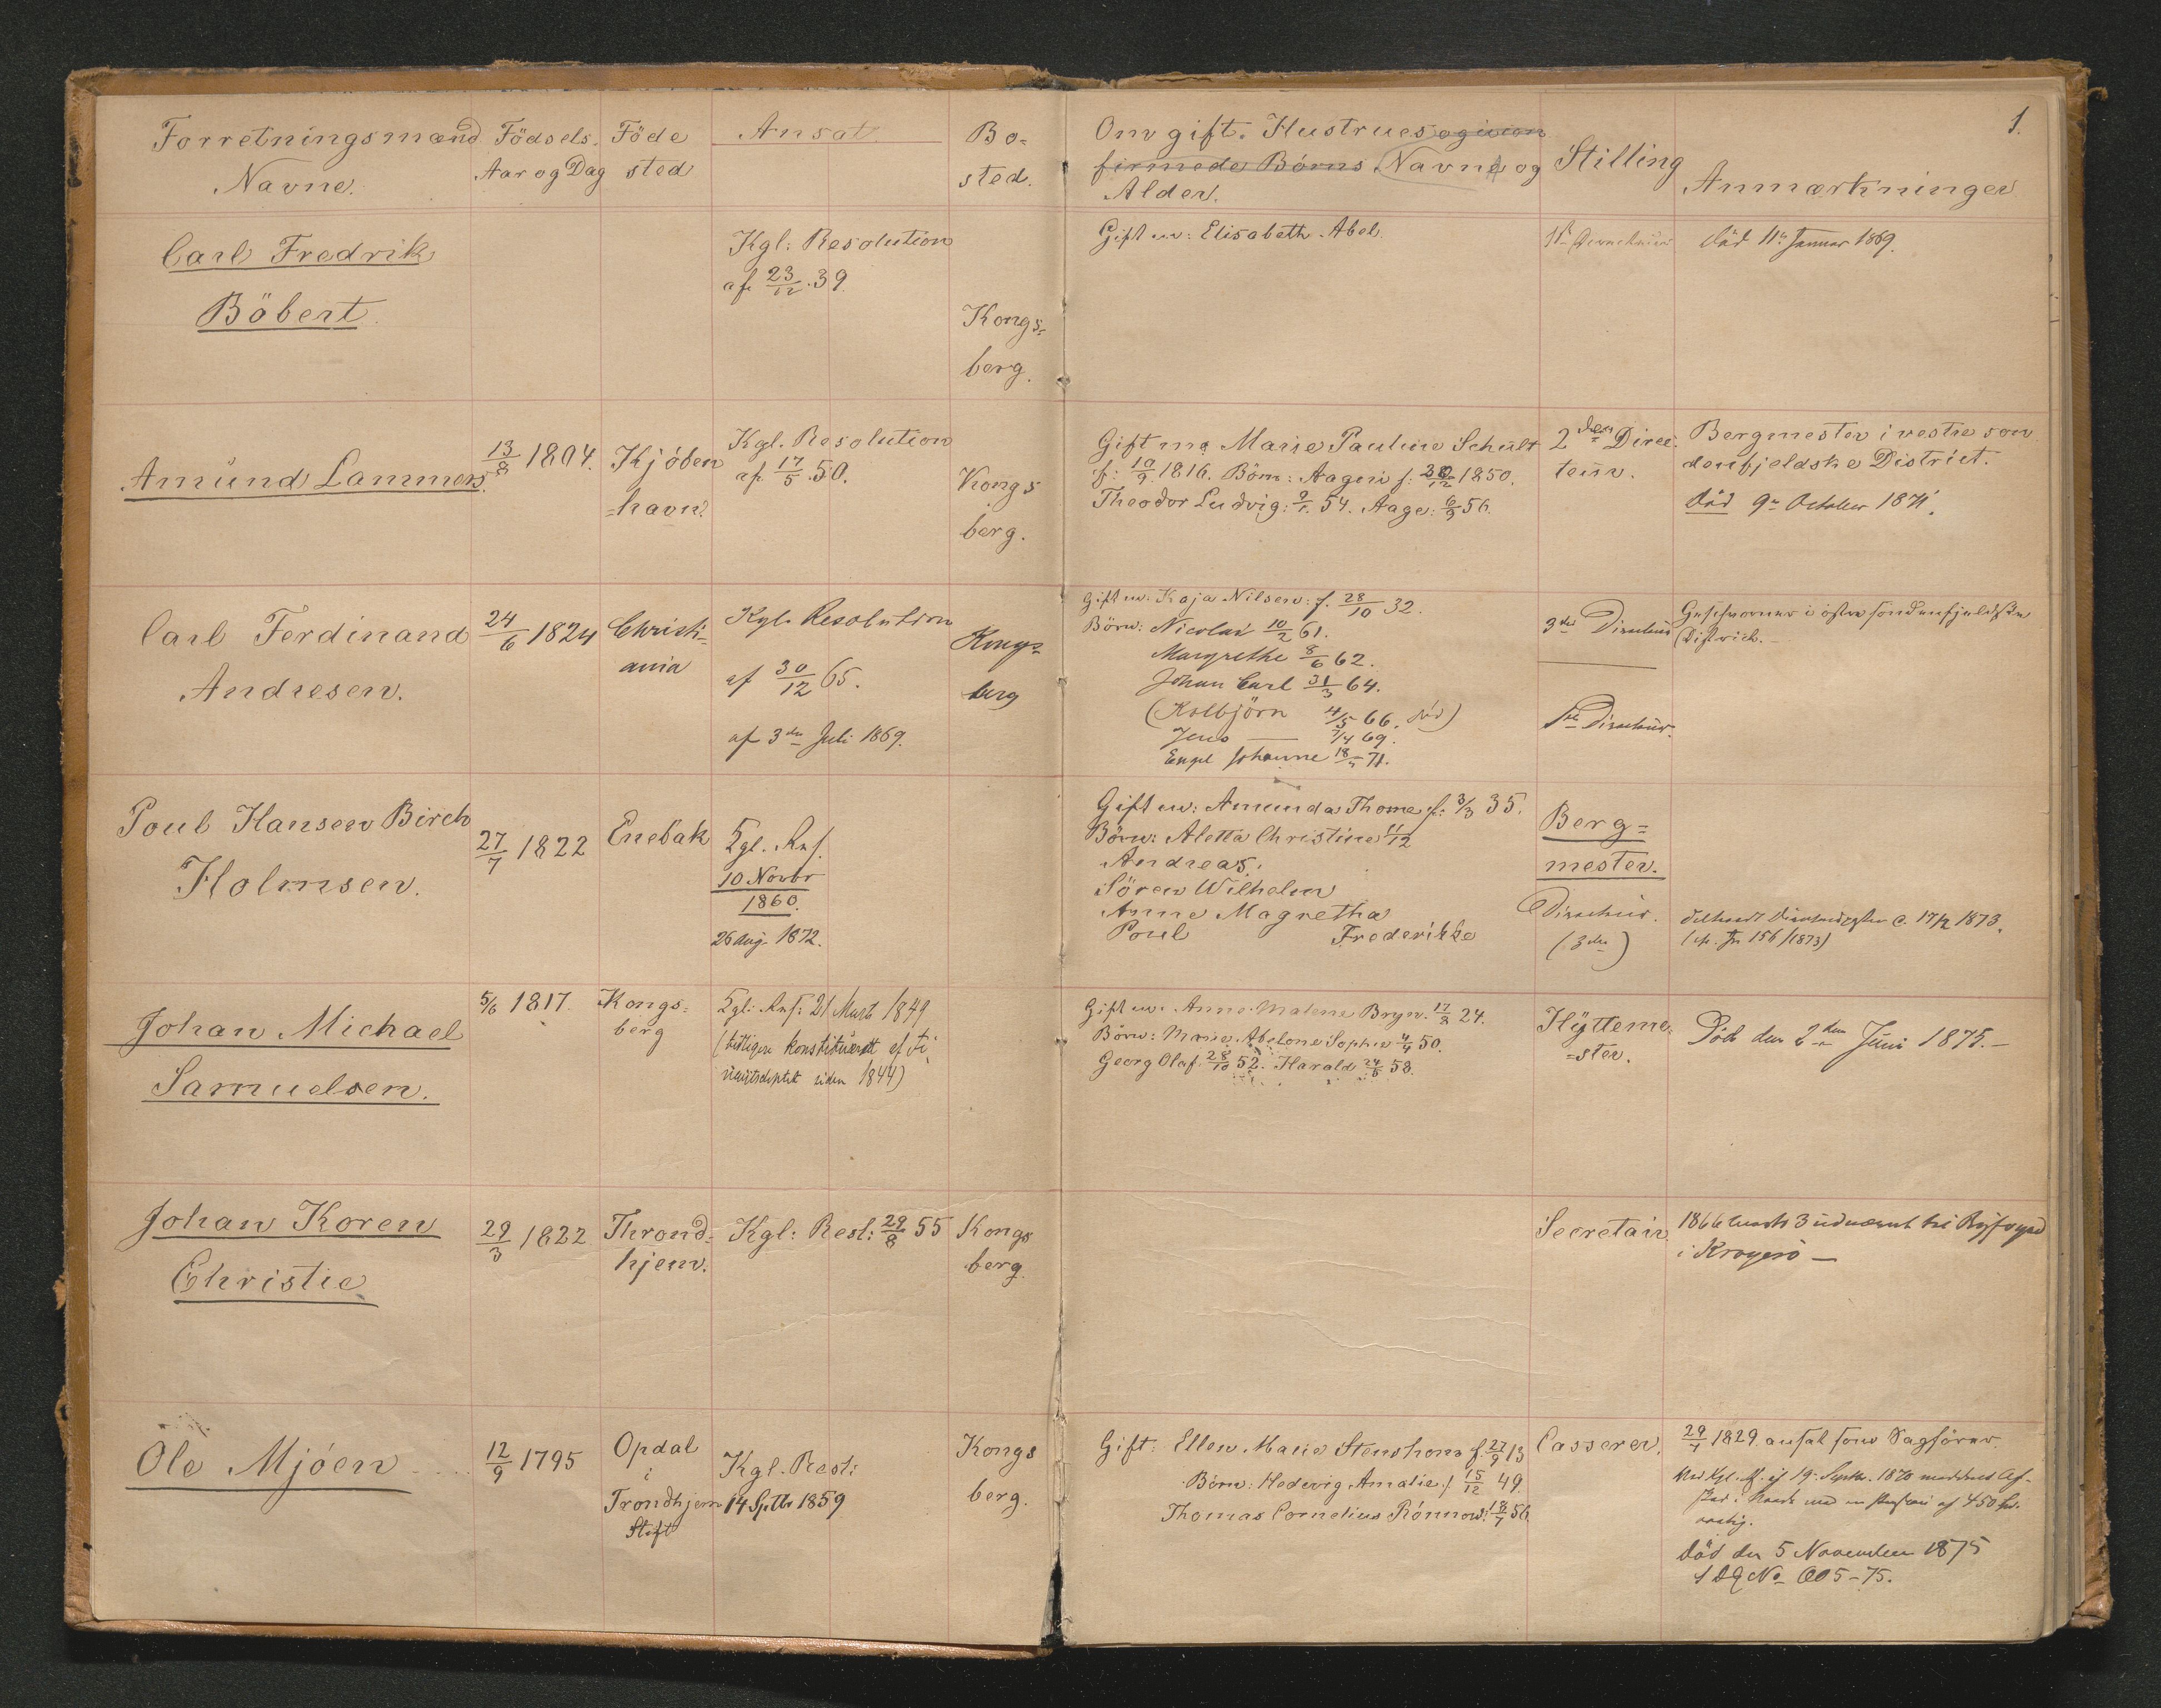 1.
Forretningsmænd Födsels. Föde Ansat. Bo-
Navne. Aar og Dag sted sted.
Om gift. Hustrues og
firmede Börns Navne og Stilling
Alder. Anmærkninger
Carl Fredrik
Böbert
Kgl: Resolution
af 23/12. 39.
Kongs-
berg.
Gift m: Elisabeth Abel.
Död 11te Januar 1869.
Amund Lammers.
13/8 1804.
Kjöben
=havn.
Kgl. Resolution
af 17/5. 50.
Kongs
berg.
Gift m: Marie Pauline Schult
f: 10/9 1816. Börn: Aagon f: 1850.
Theodor Ludvig: 54. Aage: 6/9 56.
2den Direc-
teur.
Bergmester i vestre son
denfjeldske District.
Död 9de October 1871.
Carl Ferdinand
Andresen.
24/6 1824
Christi-
ania
Kgl. Resolution
af 30/12 65.
af 3die Juli 1869.
Kongs-
berg
Gift m: Kaja Nilsen: f. 28/10 32.
Börn: Nicolai 10/2 61.
Margrethe 8/6 62.
Johan Carl 31/3 64.
(Kolbjörn 4/5 66. död)
Jens — 7/4 69.
Engel Johanne 18/ 71.
3die Directeur
1ste Directeur.
Geschworner i östre söndenfjeldske
District.
Poul Hansen Birch
Holmsen.
27/7 1822
Enebak
Kgl. Res.
10 Novbr
1860.
26 Aug. 1872.
Gift m: Amunda Thome f: 3/3 35.
Börn: Aletta Christine 11/12
Andreas.
Sören Wilhelm
Anne Magretha
Poul Frederikke
Berg=
mester.
Directeur.
(3die)
17/2 1873.
156/1873)
Johan Michael
Samuelsen.
5/6 1817.
Kongs-
berg
Kgl. Res: 21 Marts 1849
(tidligere konstitueret af Fi-
siden 1844)
Gift m: Anne Malene Bryn. 17/8 24.
Börn: Marie Abelone Sophie 4/4 50.
Georg Olaf. 28/10 52. Harald 24/5 58.
Hytteme-
=ster.
Död den 2den Juni 1875.—
Johan Koren
Christie.
29/3 1822
Thrond-
hjem.
Kgl: Resl: 29/8 55
Kongs
berg.
Secretair.
1866 Marts 3 udnævnt til Byfoged
i Kragerö —
Ole Mjöen
12/9 1795
Opdal
i
Trondhjem
Stift
Kgl. Resl:
14 Septbr 1859
Kongs
berg.
Gift: Ellen Marie Stenshorn f. 27/9 13
Börn: Hedevig Amalie f 15/12 49.
Thomas Cornelius Rönnow: 56.
Casserer.
1829 ansat som Sagförer.
Ved Kgl. 19. Septbr. 1870 meddeelt Af-
sked i Naade med en Pension af 450 Spd.
aarlig.
Död den 5 November 1875